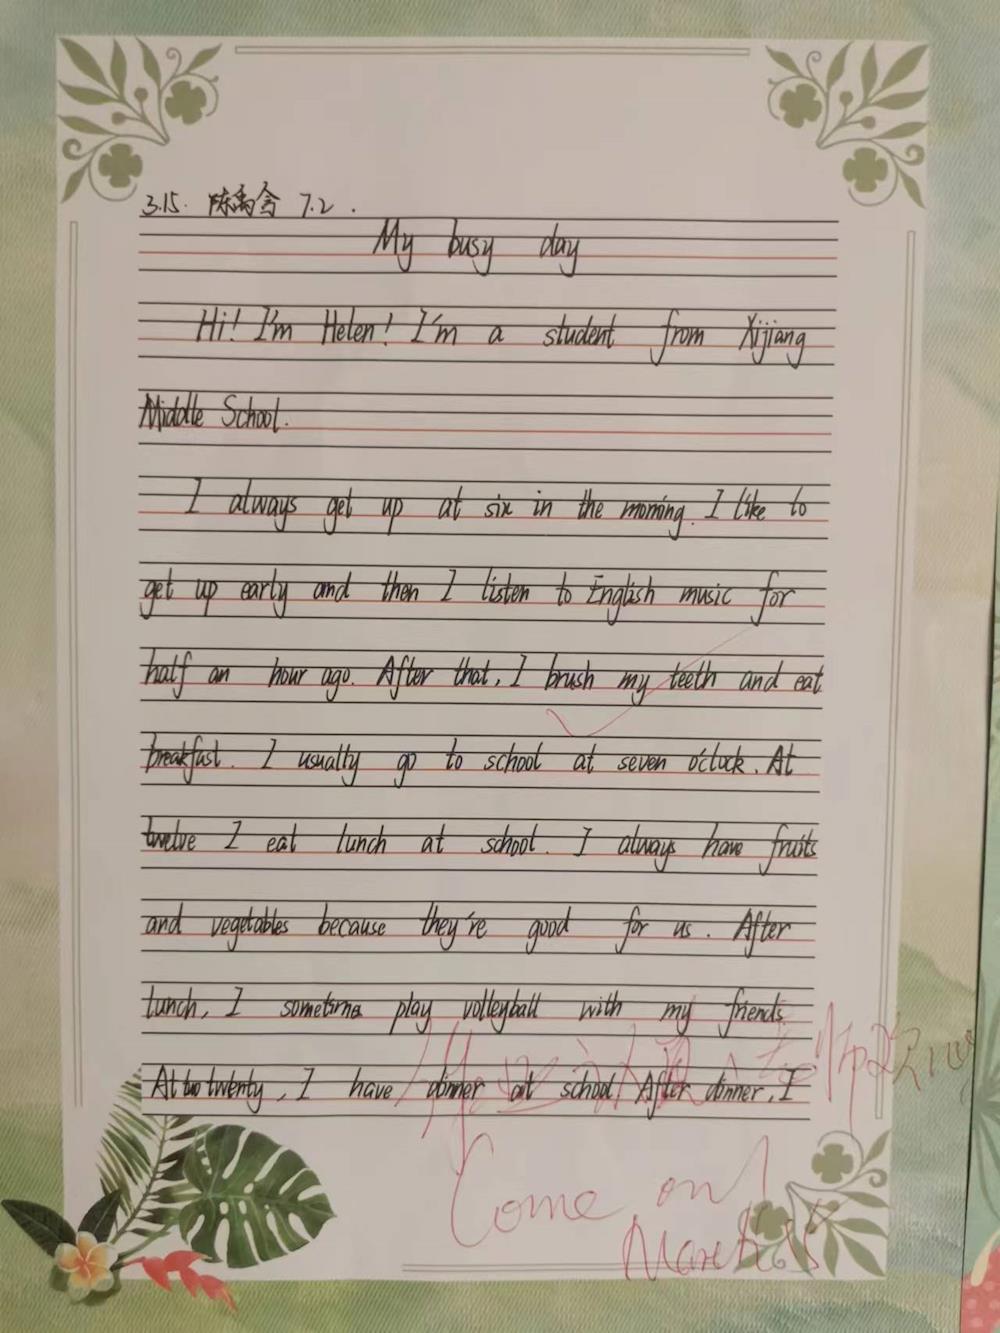 3.15. 陈禹含 7.2.
My busy day
Hi! I'm Helen! I'm a student from Xijiang
Middle School.
I always get up at six in the morning. I like to
get up early and then I listen to English music for
half an hour ago. After that, I brush my teeth and eat
breakfast. I usually go to school at seven o'clock. At
twelve I eat lunch at school. I always have fruits
and vegetables because they're good for us. After
lunch, I sometims play volleyball with my friends.
At two twenty, I have dinner at school. After dinner, I
作业认真
Come on!
March 15